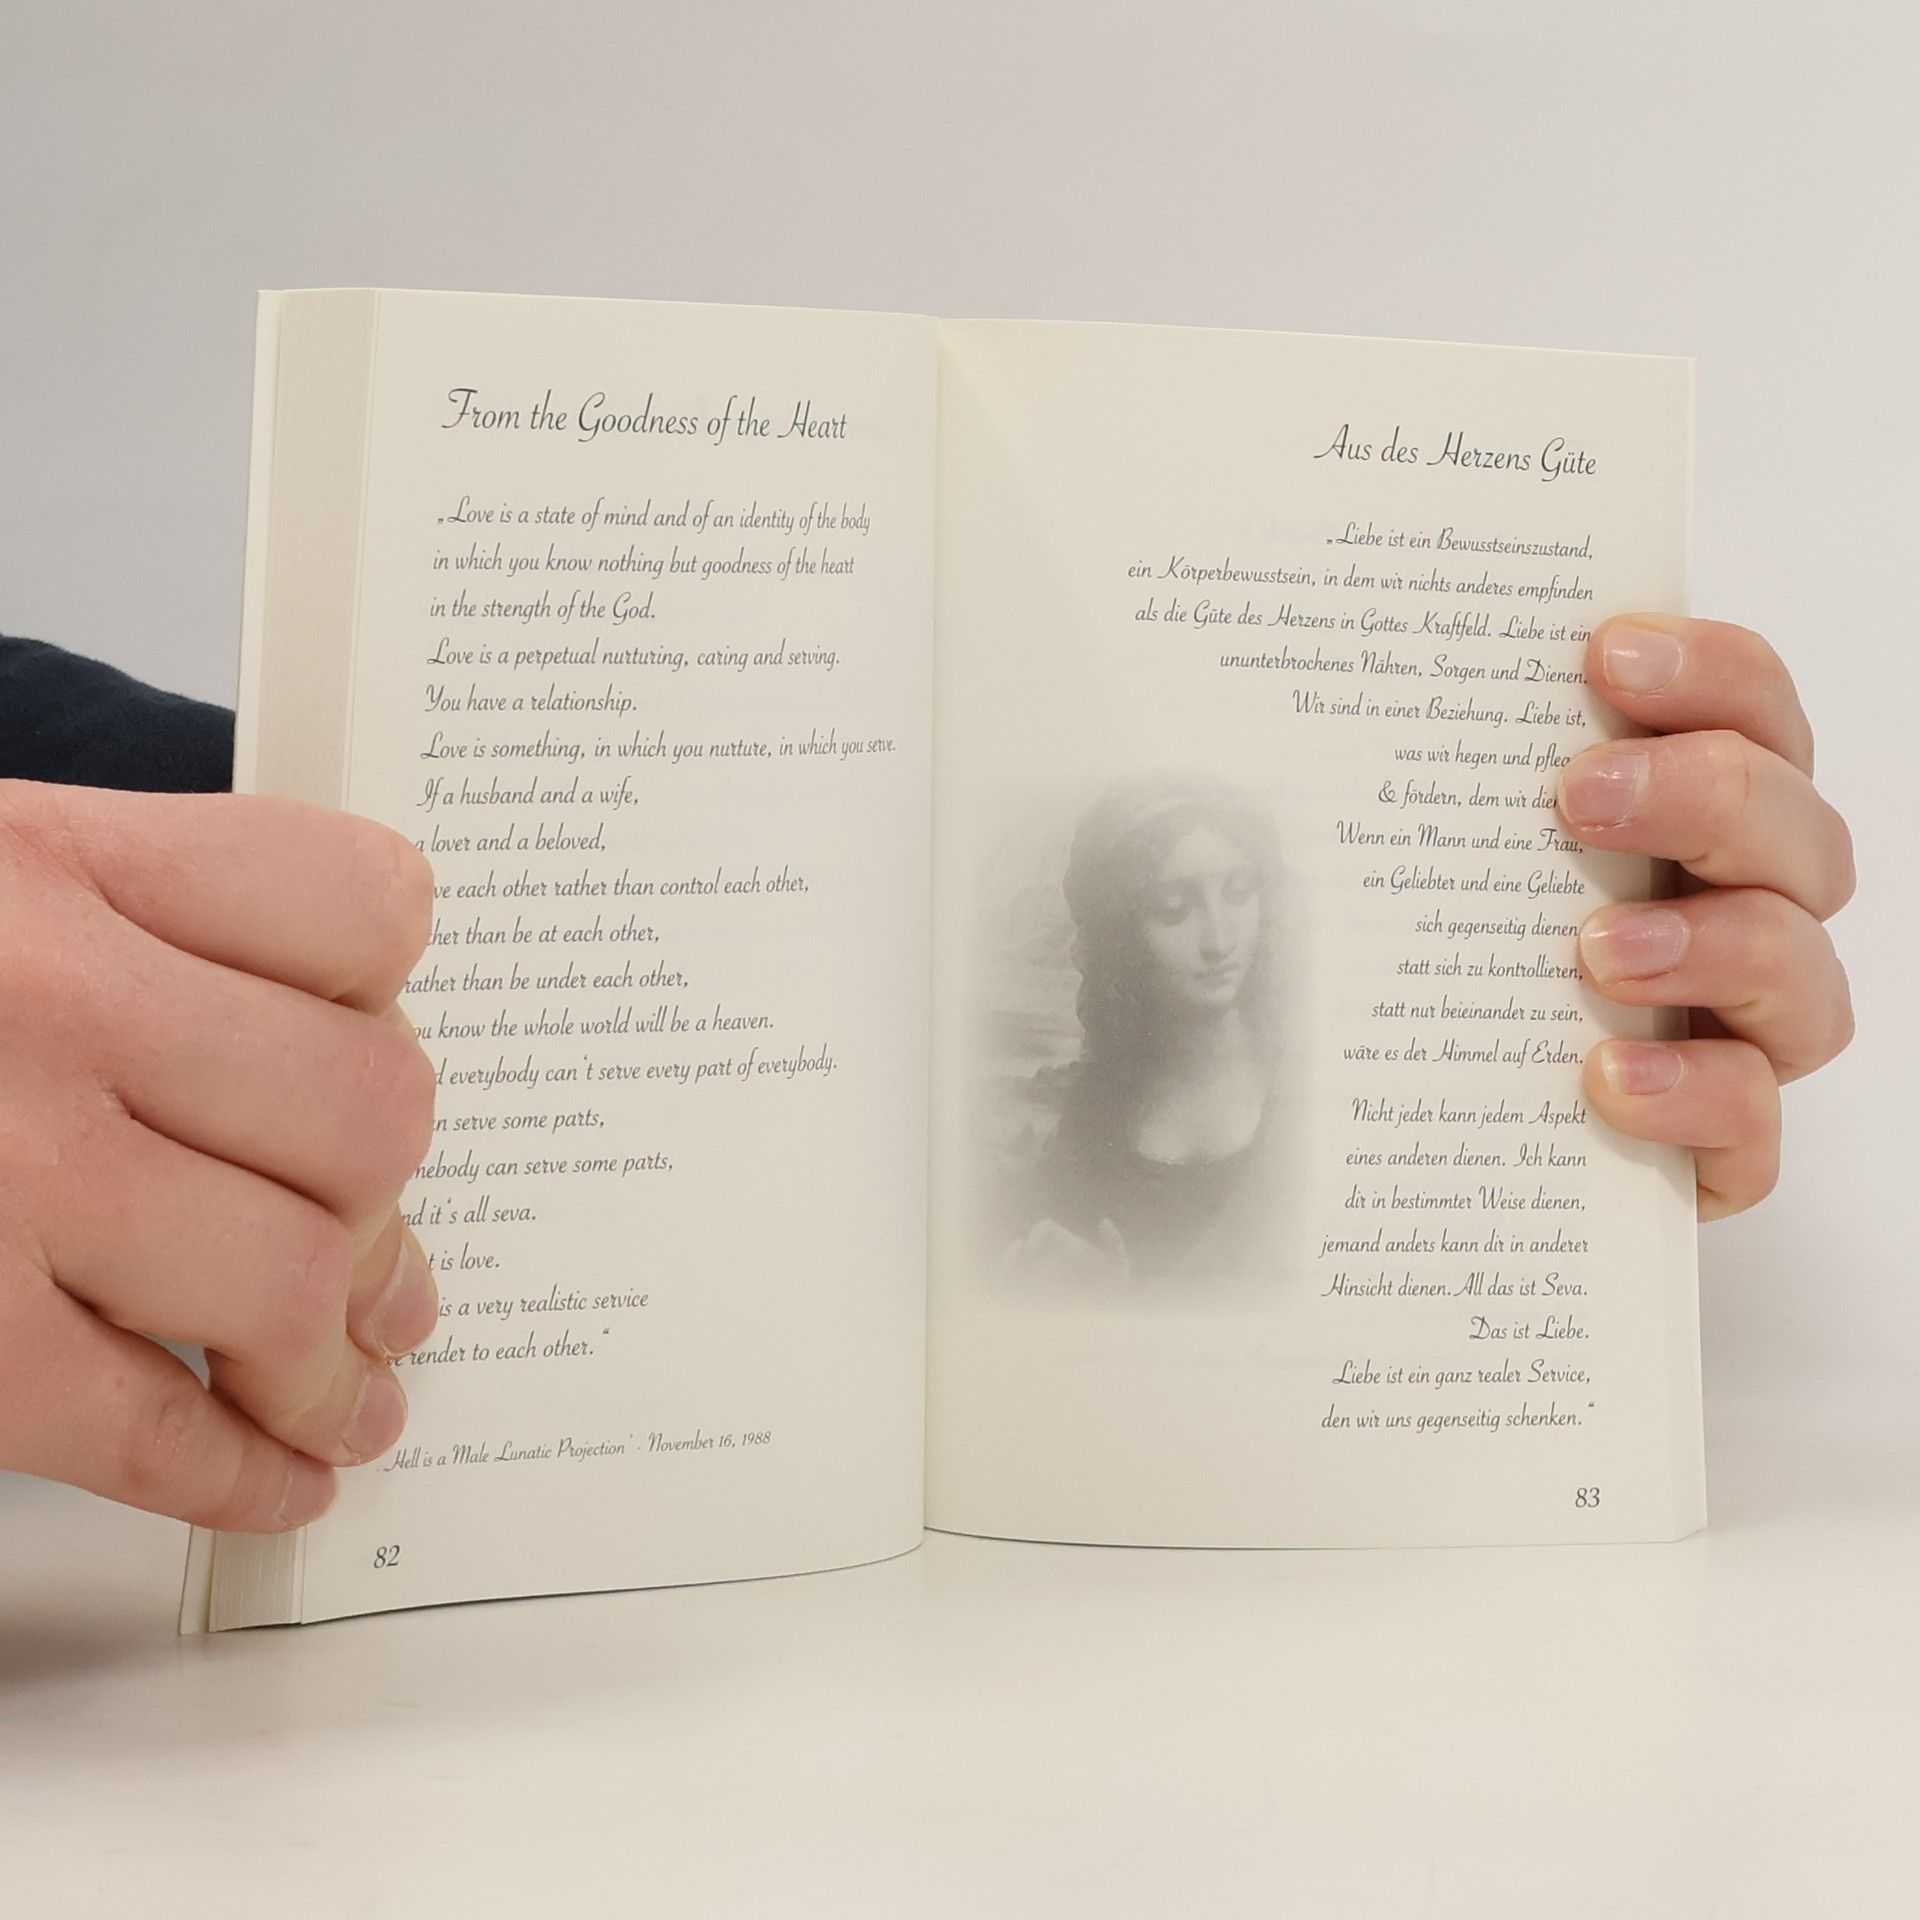 From the Goodness of the Heart
„Love is a state of mind and of an identity of the body
in which you know nothing but goodness of the heart
in the strength of the God.
Love is a perpetual nurturing, caring and serving.
You have a relationship.
Love is something, in which you nurture, in which you serve.
If a husband and a wife,
a lover and a beloved,
each other rather than control each other,
than be at each other,
rather than be under each other,
know the whole world will be a heaven.
everybody can't serve every part of everybody.
serve some parts,
can serve some parts,
it's all seva.
is love.
is a very realistic service
render to each other.“
'Hell is a Male Lunatic Projection' - November 16, 1988
82
Aus des Herzens Güte
„Liebe ist ein Bewusstseinszustand,
ein Körperbewusstsein, in dem wir nichts anderes empfinden
als die Güte des Herzens in Gottes Kraftfeld. Liebe ist ein
ununterbrochenes Nähren, Sorgen und Dienen.
Wir sind in einer Beziehung. Liebe ist,
was wir hegen und
& fördern, dem wir
Wenn ein Mann und eine Frau,
ein Geliebter und eine Geliebte
sich gegenseitig dienen
statt sich zu kontrollieren,
statt nur beieinander zu sein,
wäre es der Himmel auf Erden.
Nicht jeder kann jedem Aspekt
eines anderen dienen. Ich kann
dir in bestimmter Weise dienen,
jemand anders kann dir in anderer
Hinsicht dienen. All das ist Seva.
Das ist Liebe.
Liebe ist ein ganz realer Service,
den wir uns gegenseitig schenken.“
83